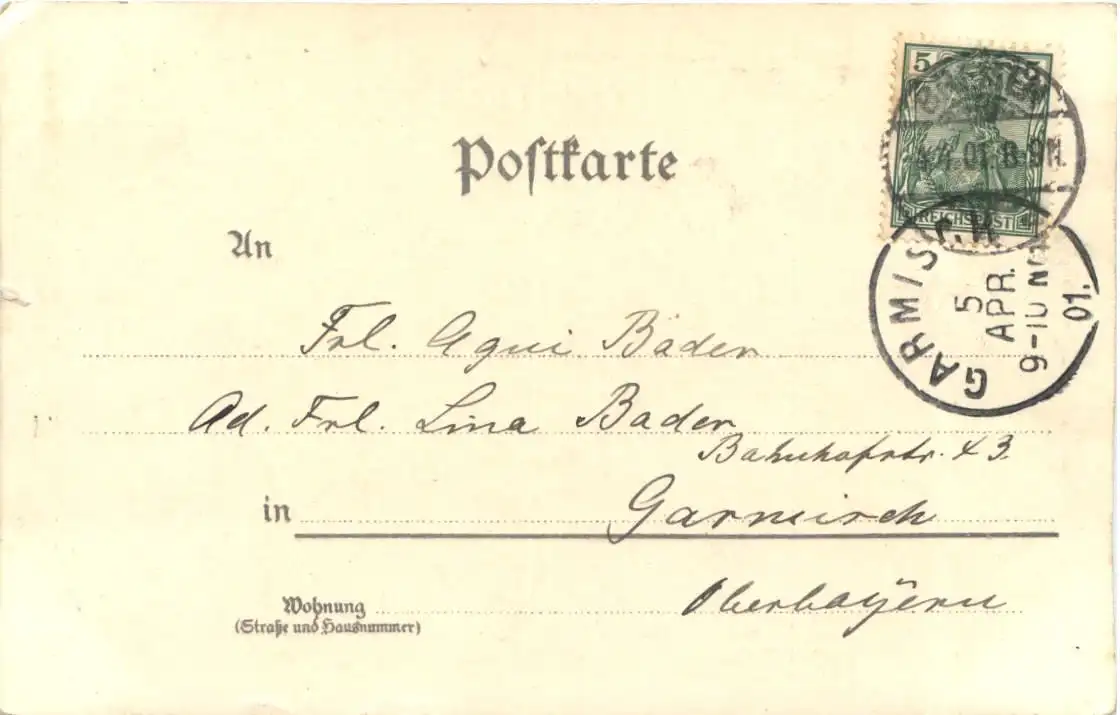 Postkarte
5
REICHSPOST
4.4.01. 8-9N.
GARMISCH
5
APR.
9-10
01.
An
Frl. Agui Bader
Ad. Frl. Lina Bader
Bahnhofstr. 43.
in Garmisch
Oberbayern
Wohnung
(Straße und Hausnummer)